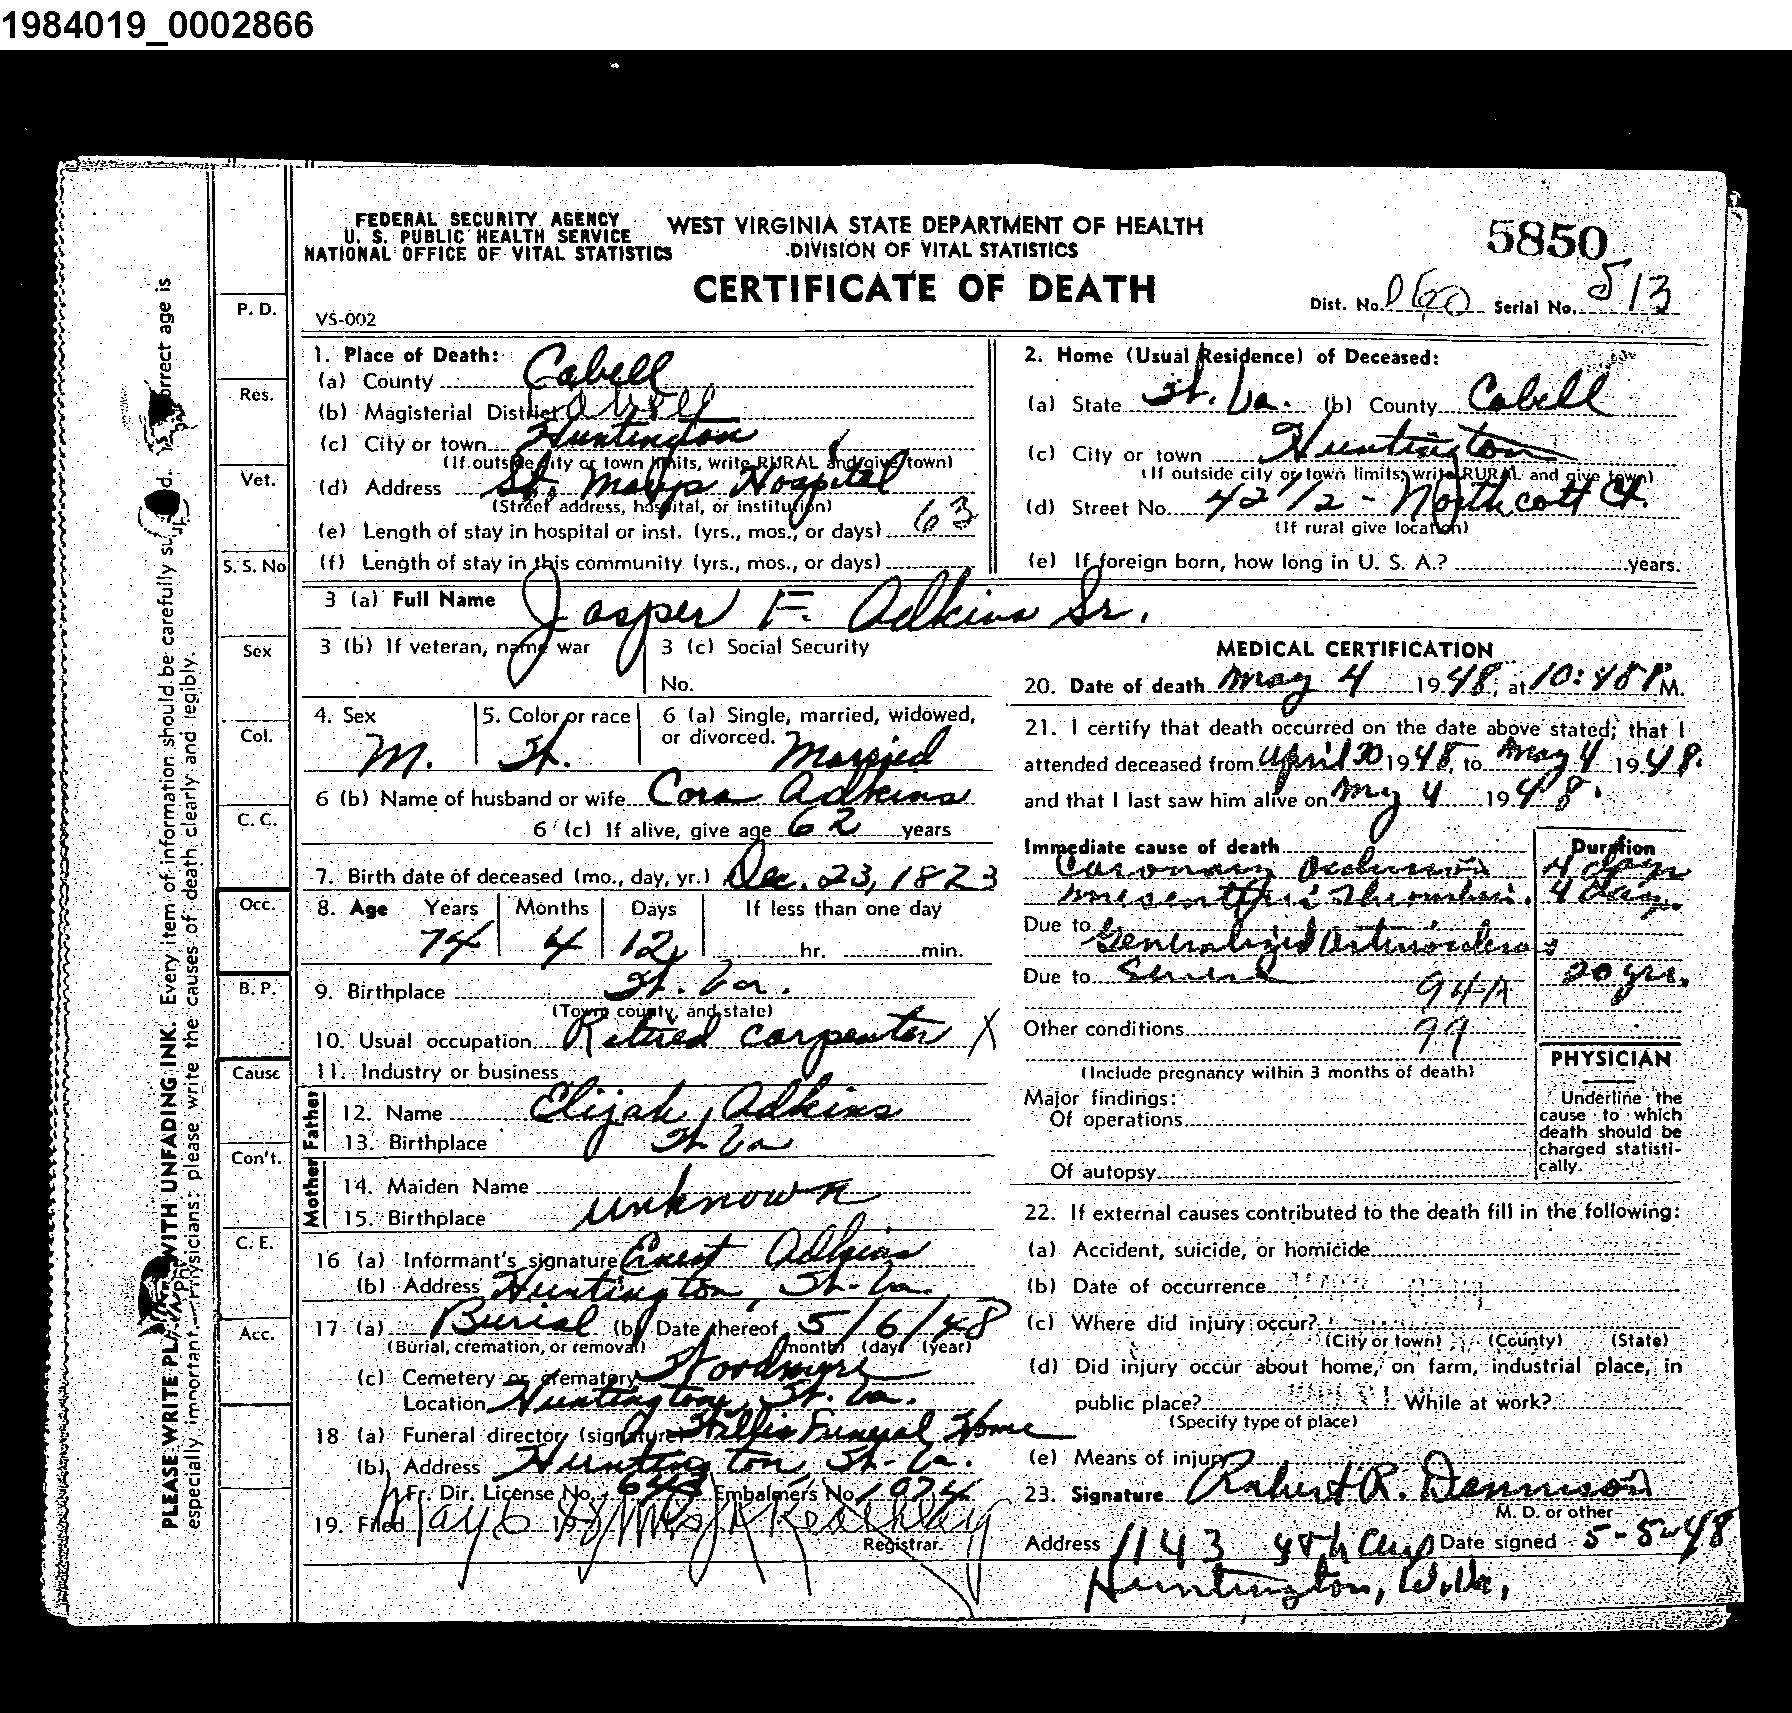 1984019_0002866
FEDERAL SECURITY AGENCY
U. S. PUBLIC HEALTH SERVICE
NATIONAL OFFICE OF VITAL STATISTICS
WEST VIRGINIA STATE DEPARTMENT OF HEALTH
DIVISION OF VITAL STATISTICS
CERTIFICATE OF DEATH
5850
VS-002
Dist. No. Serial No. 513
PLEASE WRITE WITH UNFADING INK. Every item of information should be carefully correct age is
especially important.—Physicians: please write the causes of death clearly and legibly.
P. D.
Res.
Vet.
S. S. No
Sex
Col.
C. C.
Occ.
B. P.
Cause
Con't.
C. E.
Acc.
1. Place of Death:
(a) County Cabell
(b) Magisterial District
(c) City or town Huntington
(If outside city or town limits, write RURAL and give town)
(d) Address St. Marys Hospital
(Street address, hospital, or institution)
(e) Length of stay in hospital or inst. (yrs., mos., or days) 63
(f) Length of stay in this community (yrs., mos., or days)
2. Home (Usual Residence) of Deceased:
(a) State W. Va. (b) County Cabell
(c) City or town Huntington
(If outside city or town limits, write RURAL and give town)
(d) Street No. 42 1/2 - Northcott Ct.
(If rural give location)
(e) If foreign born, how long in U. S. A.? years.
3 (a) Full Name Jasper F. Adkins Sr.
3 (b) If veteran, name war
3 (c) Social Security
No.
4. Sex M.
5. Color or race W.
6 (a) Single, married, widowed,
or divorced. Married
6 (b) Name of husband or wife Cora Adkins
6 (c) If alive, give age 62 years
7. Birth date of deceased (mo., day, yr.) Dec. 23, 1873
8. Age Years Months Days If less than one day
74 4 12 hr. min.
9. Birthplace W. Va.
(Town, county, and state)
10. Usual occupation Retired carpenter X
11. Industry or business
Father
12. Name Elijah Adkins
13. Birthplace W. Va
Mother
14. Maiden Name unknown
15. Birthplace
16 (a) Informant's signature Ernest Adkins
(b) Address Huntington, W. Va.
17 (a) Burial (b) Date thereof 5/6/48
(Burial, cremation, or removal) (month) (day) (year)
(c) Cemetery or crematory Woodmere
Location Huntington, W. Va.
18 (a) Funeral director (signature) Funeral Home
(b) Address Huntington, W. Va.
Fr. Dir. License No. Embalmers No. 1974
19. Filed May 6
Registrar.
MEDICAL CERTIFICATION
20. Date of death May 4 1948, at 10:48 P M.
21. I certify that death occurred on the date above stated; that I
attended deceased from April 30 1948, to May 4 1948.
and that I last saw him alive on May 4 1948.
Immediate cause of death Duration
Coronary Occlusion 4 days
Mesenteric Thrombosis. 4 days.
Due to Generalized Arteriosclerosis
Due to 20 yrs.
94A
Other conditions 99
(Include pregnancy within 3 months of death)
Major findings:
Of operations
Of autopsy
PHYSICIAN
Underline the
cause to which
death should be
charged statisti-
cally.
22. If external causes contributed to the death fill in the following:
(a) Accident, suicide, or homicide
(b) Date of occurrence
(c) Where did injury occur?
(City or town) (County) (State)
(d) Did injury occur about home, on farm, industrial place, in
public place? While at work?
(Specify type of place)
(e) Means of injury
23. Signature Robert R. Dennison
M. D. or other
Address 1143 Date signed 5-5-48
Huntington, W. Va.